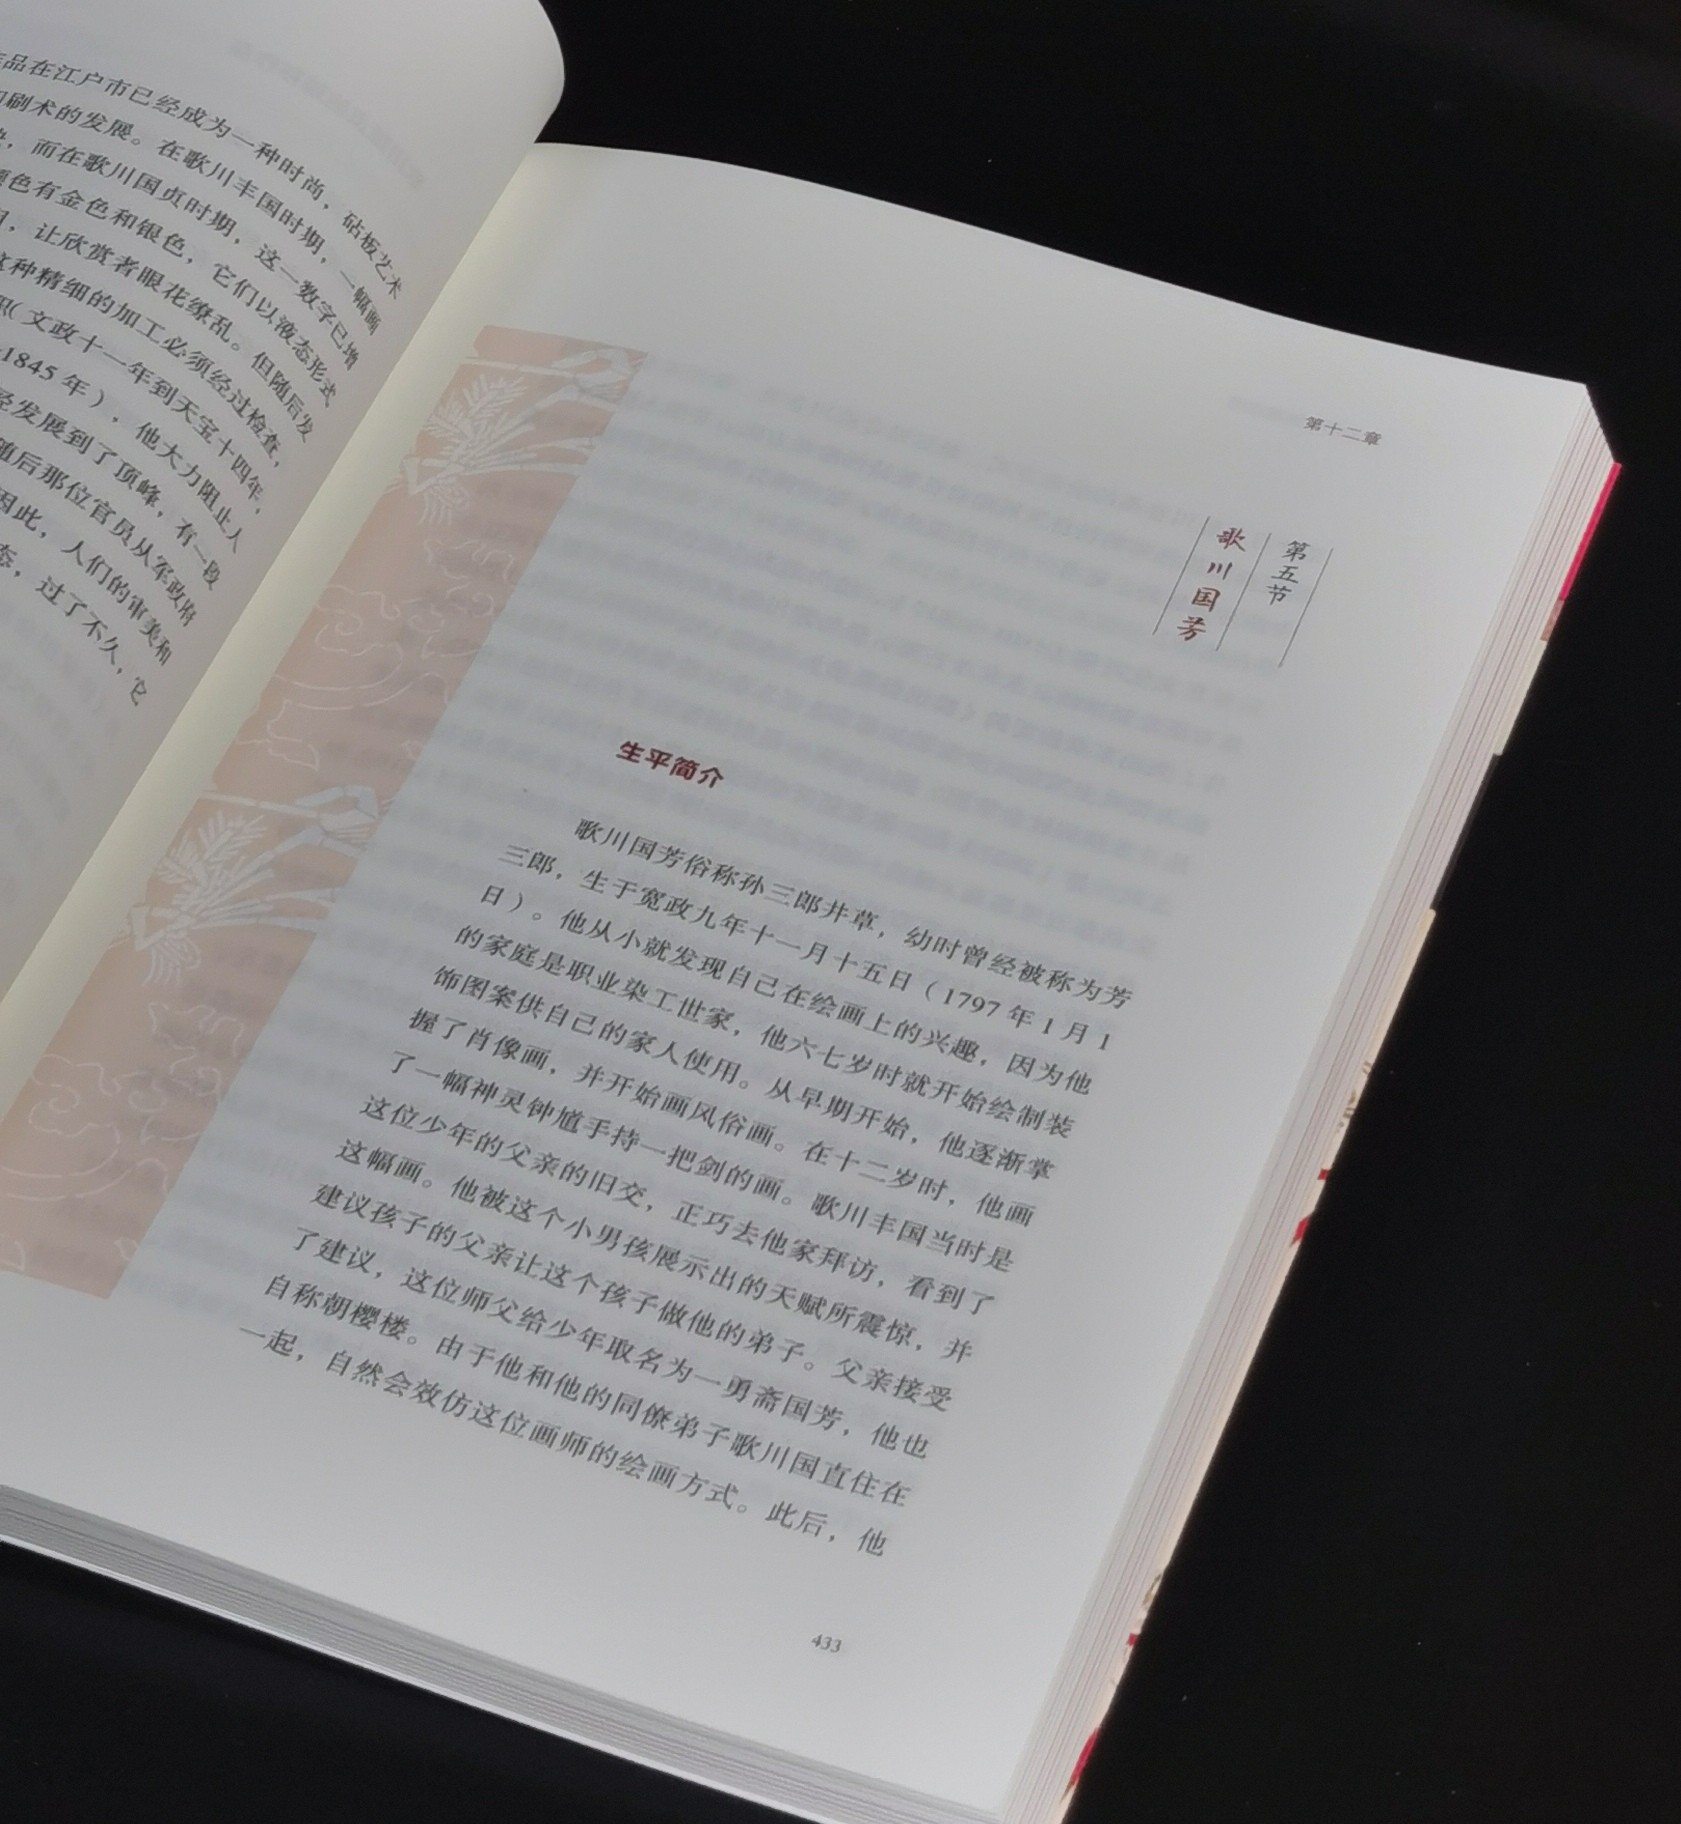 品在江户市已经成为一种时尚，砧板艺术
刷术的发展。在歌川丰国时期，一幅画
，而在歌川国贞时期，这一数字已增
色有金色和银色，它们以液态形式
，让欣赏者眼花缭乱。但随后发
这种精细的加工必须经过检查，
（文政十一年到天宝十四年，
1845年），他大力阻止人
发展到了顶峰，有一段
随后那位官员从军政府
因此，人们的审美和
态，过了不久，它
第十二章
第五节
歌川国芳
生平简介
歌川国芳俗称孙三郎井草，幼时曾经被称为芳
三郎，生于宽政九年十一月十五日（1797年1月1
日）。他从小就发现自己在绘画上的兴趣，因为他
的家庭是职业染工世家，他六七岁时就开始绘制装
饰图案供自己的家人使用。从早期开始，他逐渐掌
握了肖像画，并开始画风俗画。在十二岁时，他画
了一幅神灵钟馗手持一把剑的画。歌川丰国当时是
这位少年的父亲的旧交，正巧去他家拜访，看到了
这幅画。他被这个小男孩展示出的天赋所震惊，并
建议孩子的父亲让这个孩子做他的弟子。父亲接受
了建议，这位师父给少年取名为一勇斋国芳，他也
自称朝樱楼。由于他和他的同僚弟子歌川国直住在
一起，自然会效仿这位画师的绘画方式。此后，他
433